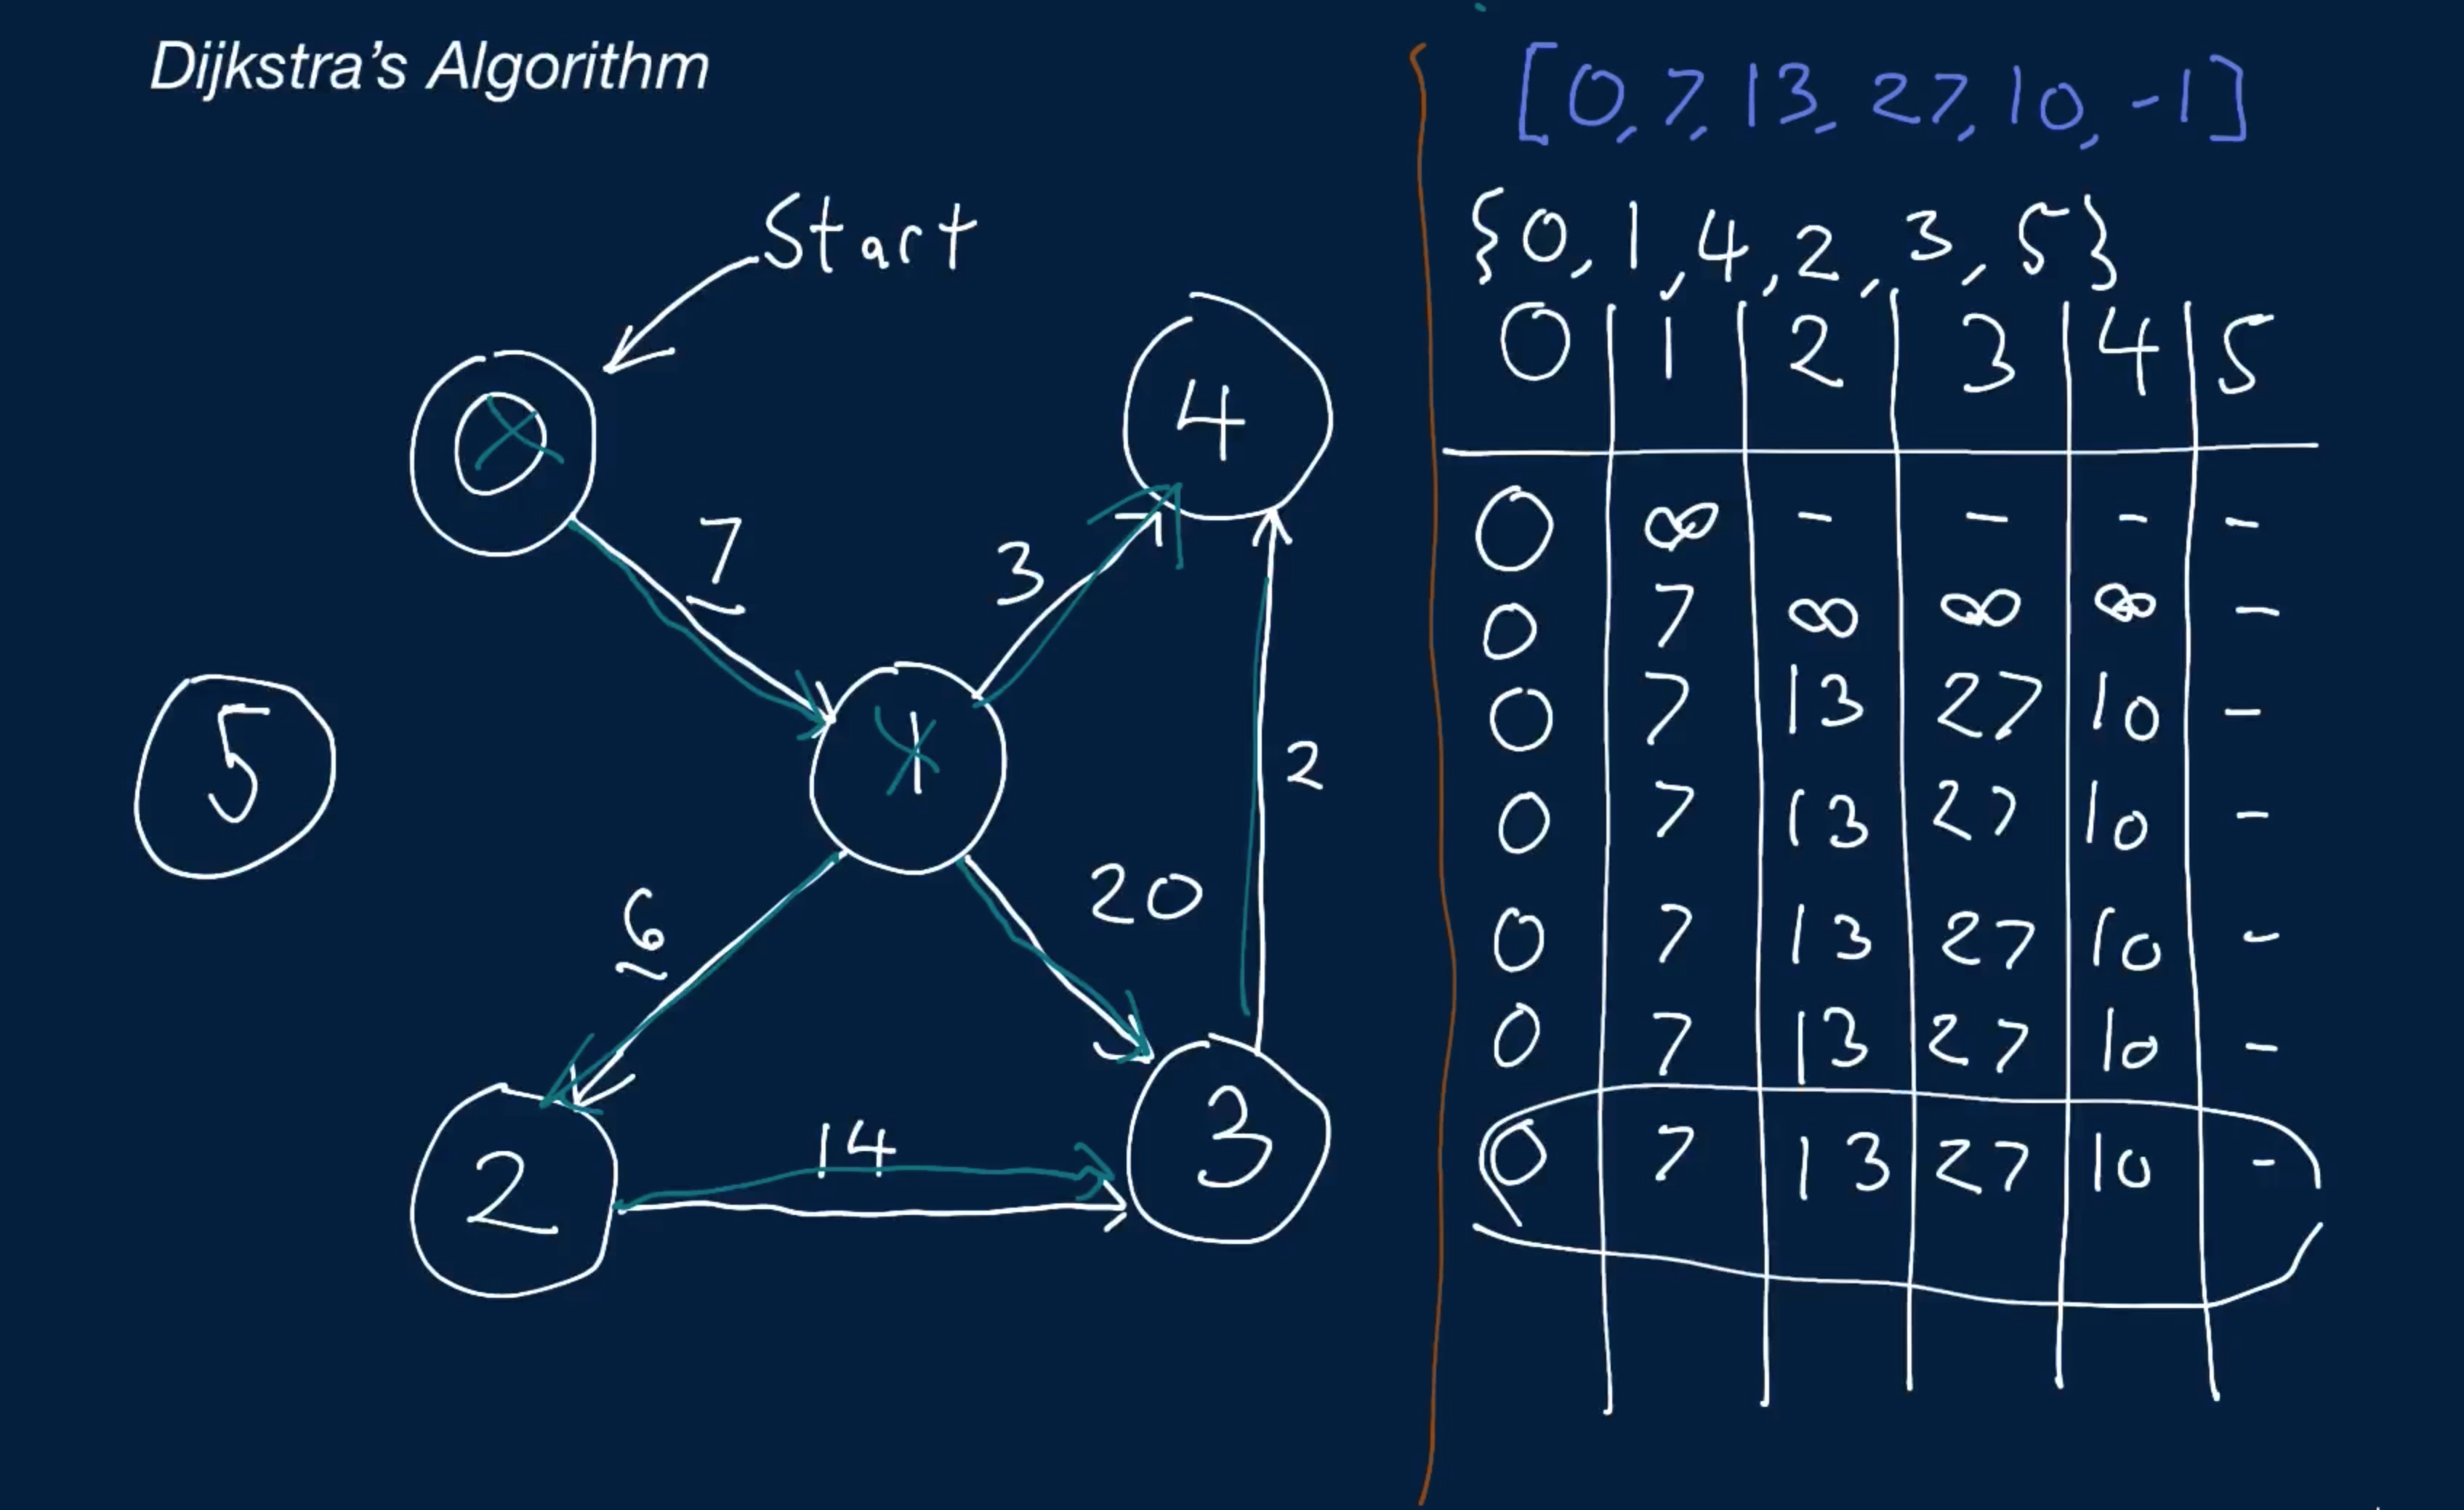 Dijkstra's Algorithm
Start
0
4
7
3
5
1
2
6
20
14
2
3
[0, 7, 13, 27, 10, -1]
{0, 1, 4, 2, 3, 5}
0 1 2 3 4 5
0 ∞ - - - -
0 7 ∞ ∞ ∞ -
0 7 13 27 10 -
0 7 13 27 10 -
0 7 13 27 10 -
0 7 13 27 10 -
0 7 13 27 10 -